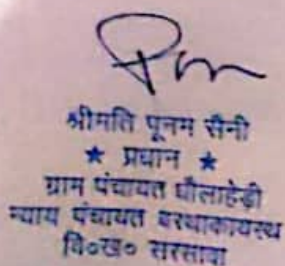 श्रीमति पूनम सैनी
★ प्रधान ★
ग्राम पंचायत धौलाहेड़ी
न्याय पंचायत बरथाकायस्थ
वि०ख० सरसावा